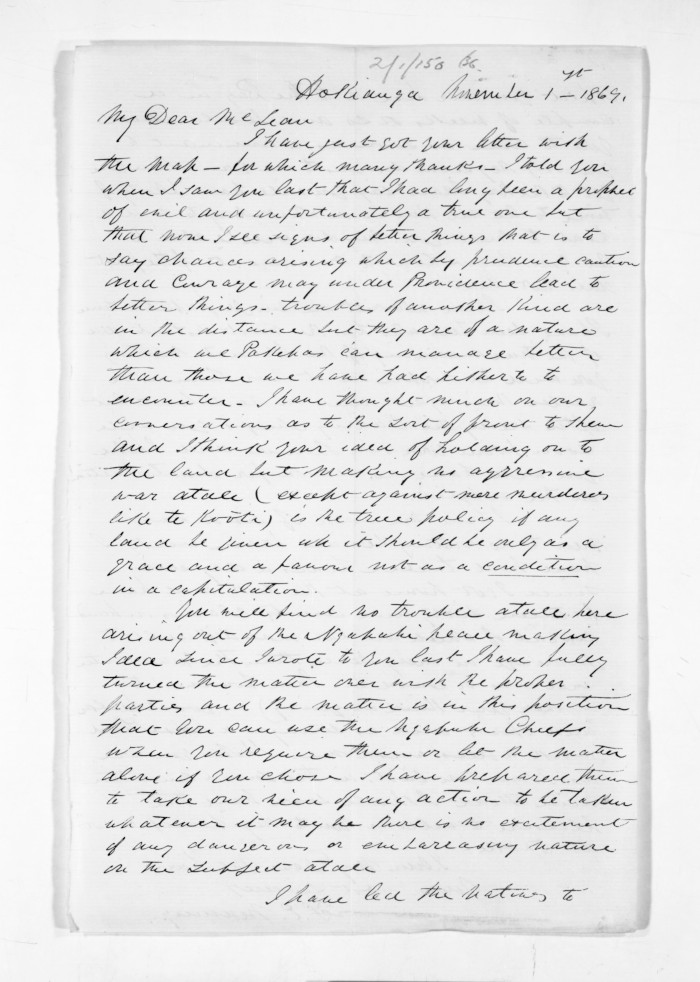 2/1/150
Hokianga November 1st - 1869.
My Dear McLean
I have just got your letter with
the Map - for which many thanks - I told you
when I saw you last that I had long been a prophet
of evil and unfortunately a true one but
that now I see signs of better things that is to
say chances arising which by prudence caution
and Courage may under Providence lead to
better things - troubles of another Kind are
in the distance but they are of a nature
which we Pakehas can manage better
than those we have had hitherto to
encounter - I have thought much on our
conversations as to the sort of front to shew
and I think your idea of holding on to
the land but making no aggressive
war atall (except against mere murderers
like te Kooti) is the true policy if any
land be given up it should be only as a
grace and a favour not as a condition
in a capitulation.
You will find no trouble atall here
arising out of the Ngapuhi peace making
Idea since I wrote to you last I have fully
turned the matter over with the proper
parties and the matter is in this position
that you can use the Ngapuhi Chiefs
when you require them or let the matter
alone if you chose I have prepared them
to take our view of any action to be taken
whatever it may be there is no excitement
of any dangerous or embarrassing nature
on the subject atall
I have led the natives to